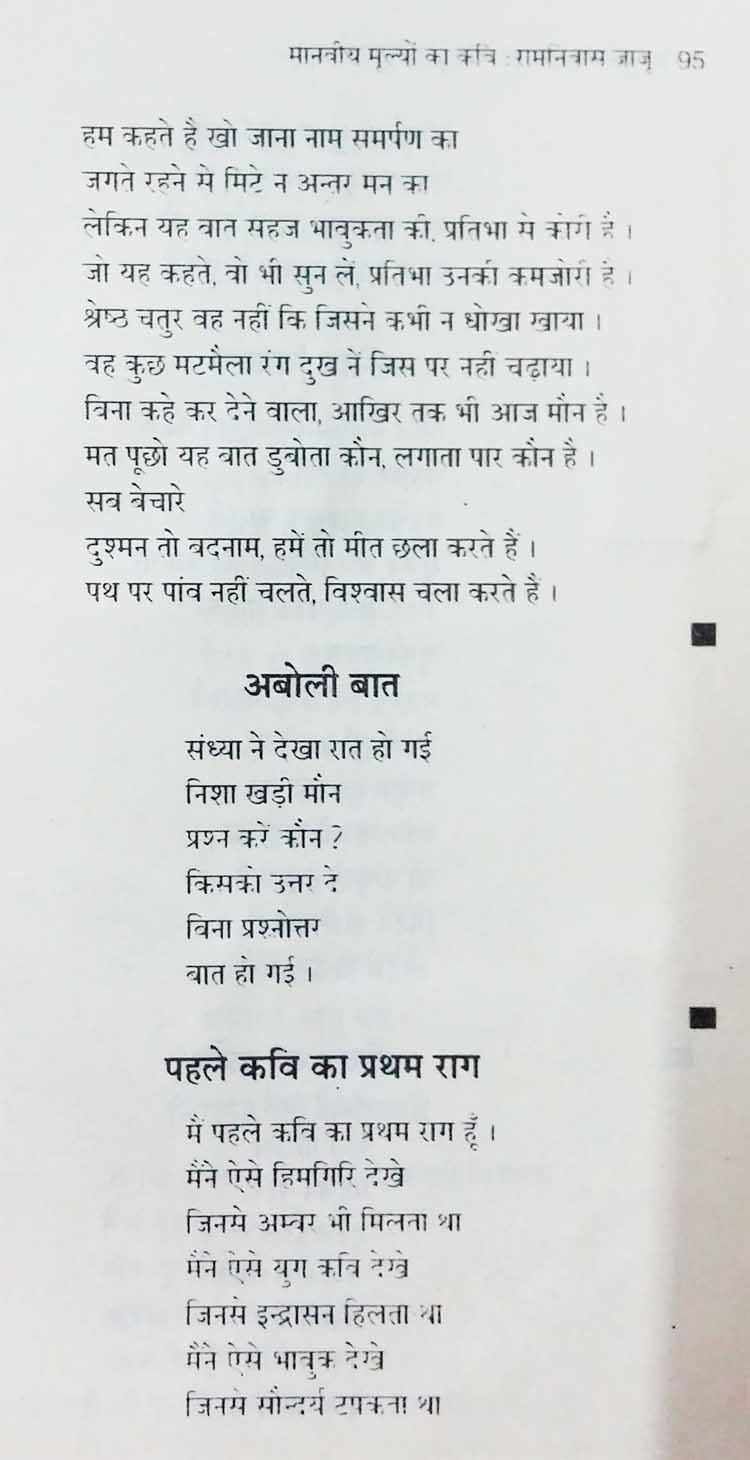 मानवीय मूल्यों का कवि : रामनिवास जाजू 95
हम कहते है खो जाना नाम समर्पण का
जगते रहने से मिटे न अन्तर मन का
लेकिन यह बात सहज भावुकता की, प्रतिभा से कोरी है ।
जो यह कहते, वो भी सुन लें, प्रतिभा उनकी कमजोरी है ।
श्रेष्ठ चतुर वह नहीं कि जिसने कभी न धोखा खाया ।
वह कुछ मटमैला रंग दुख नें जिस पर नहीं चढ़ाया ।
बिना कहे कर देने वाला, आखिर तक भी आज मौन है ।
मत पूछो यह बात डुबोता कौन, लगाता पार कौन है ।
सब बेचारे
दुश्मन तो बदनाम, हमें तो मीत छला करते हैं ।
पथ पर पांव नहीं चलते, विश्वास चला करते हैं ।
अबोली बात
संध्या ने देखा रात हो गई
निशा खड़ी मौन
प्रश्न करें कौन ?
किसको उत्तर दे
बिना प्रश्नोत्तर
बात हो गई ।
पहले कवि का प्रथम राग
मैं पहले कवि का प्रथम राग हूँ ।
मैंने ऐसे हिमगिरि देखे
जिनसे अम्बर भी मिलता था
मैंने ऐसे युग कवि देखे
जिनसे इन्द्रासन हिलता था
मैंने ऐसे भावुक देखे
जिनसे सौन्दर्य टपकता था